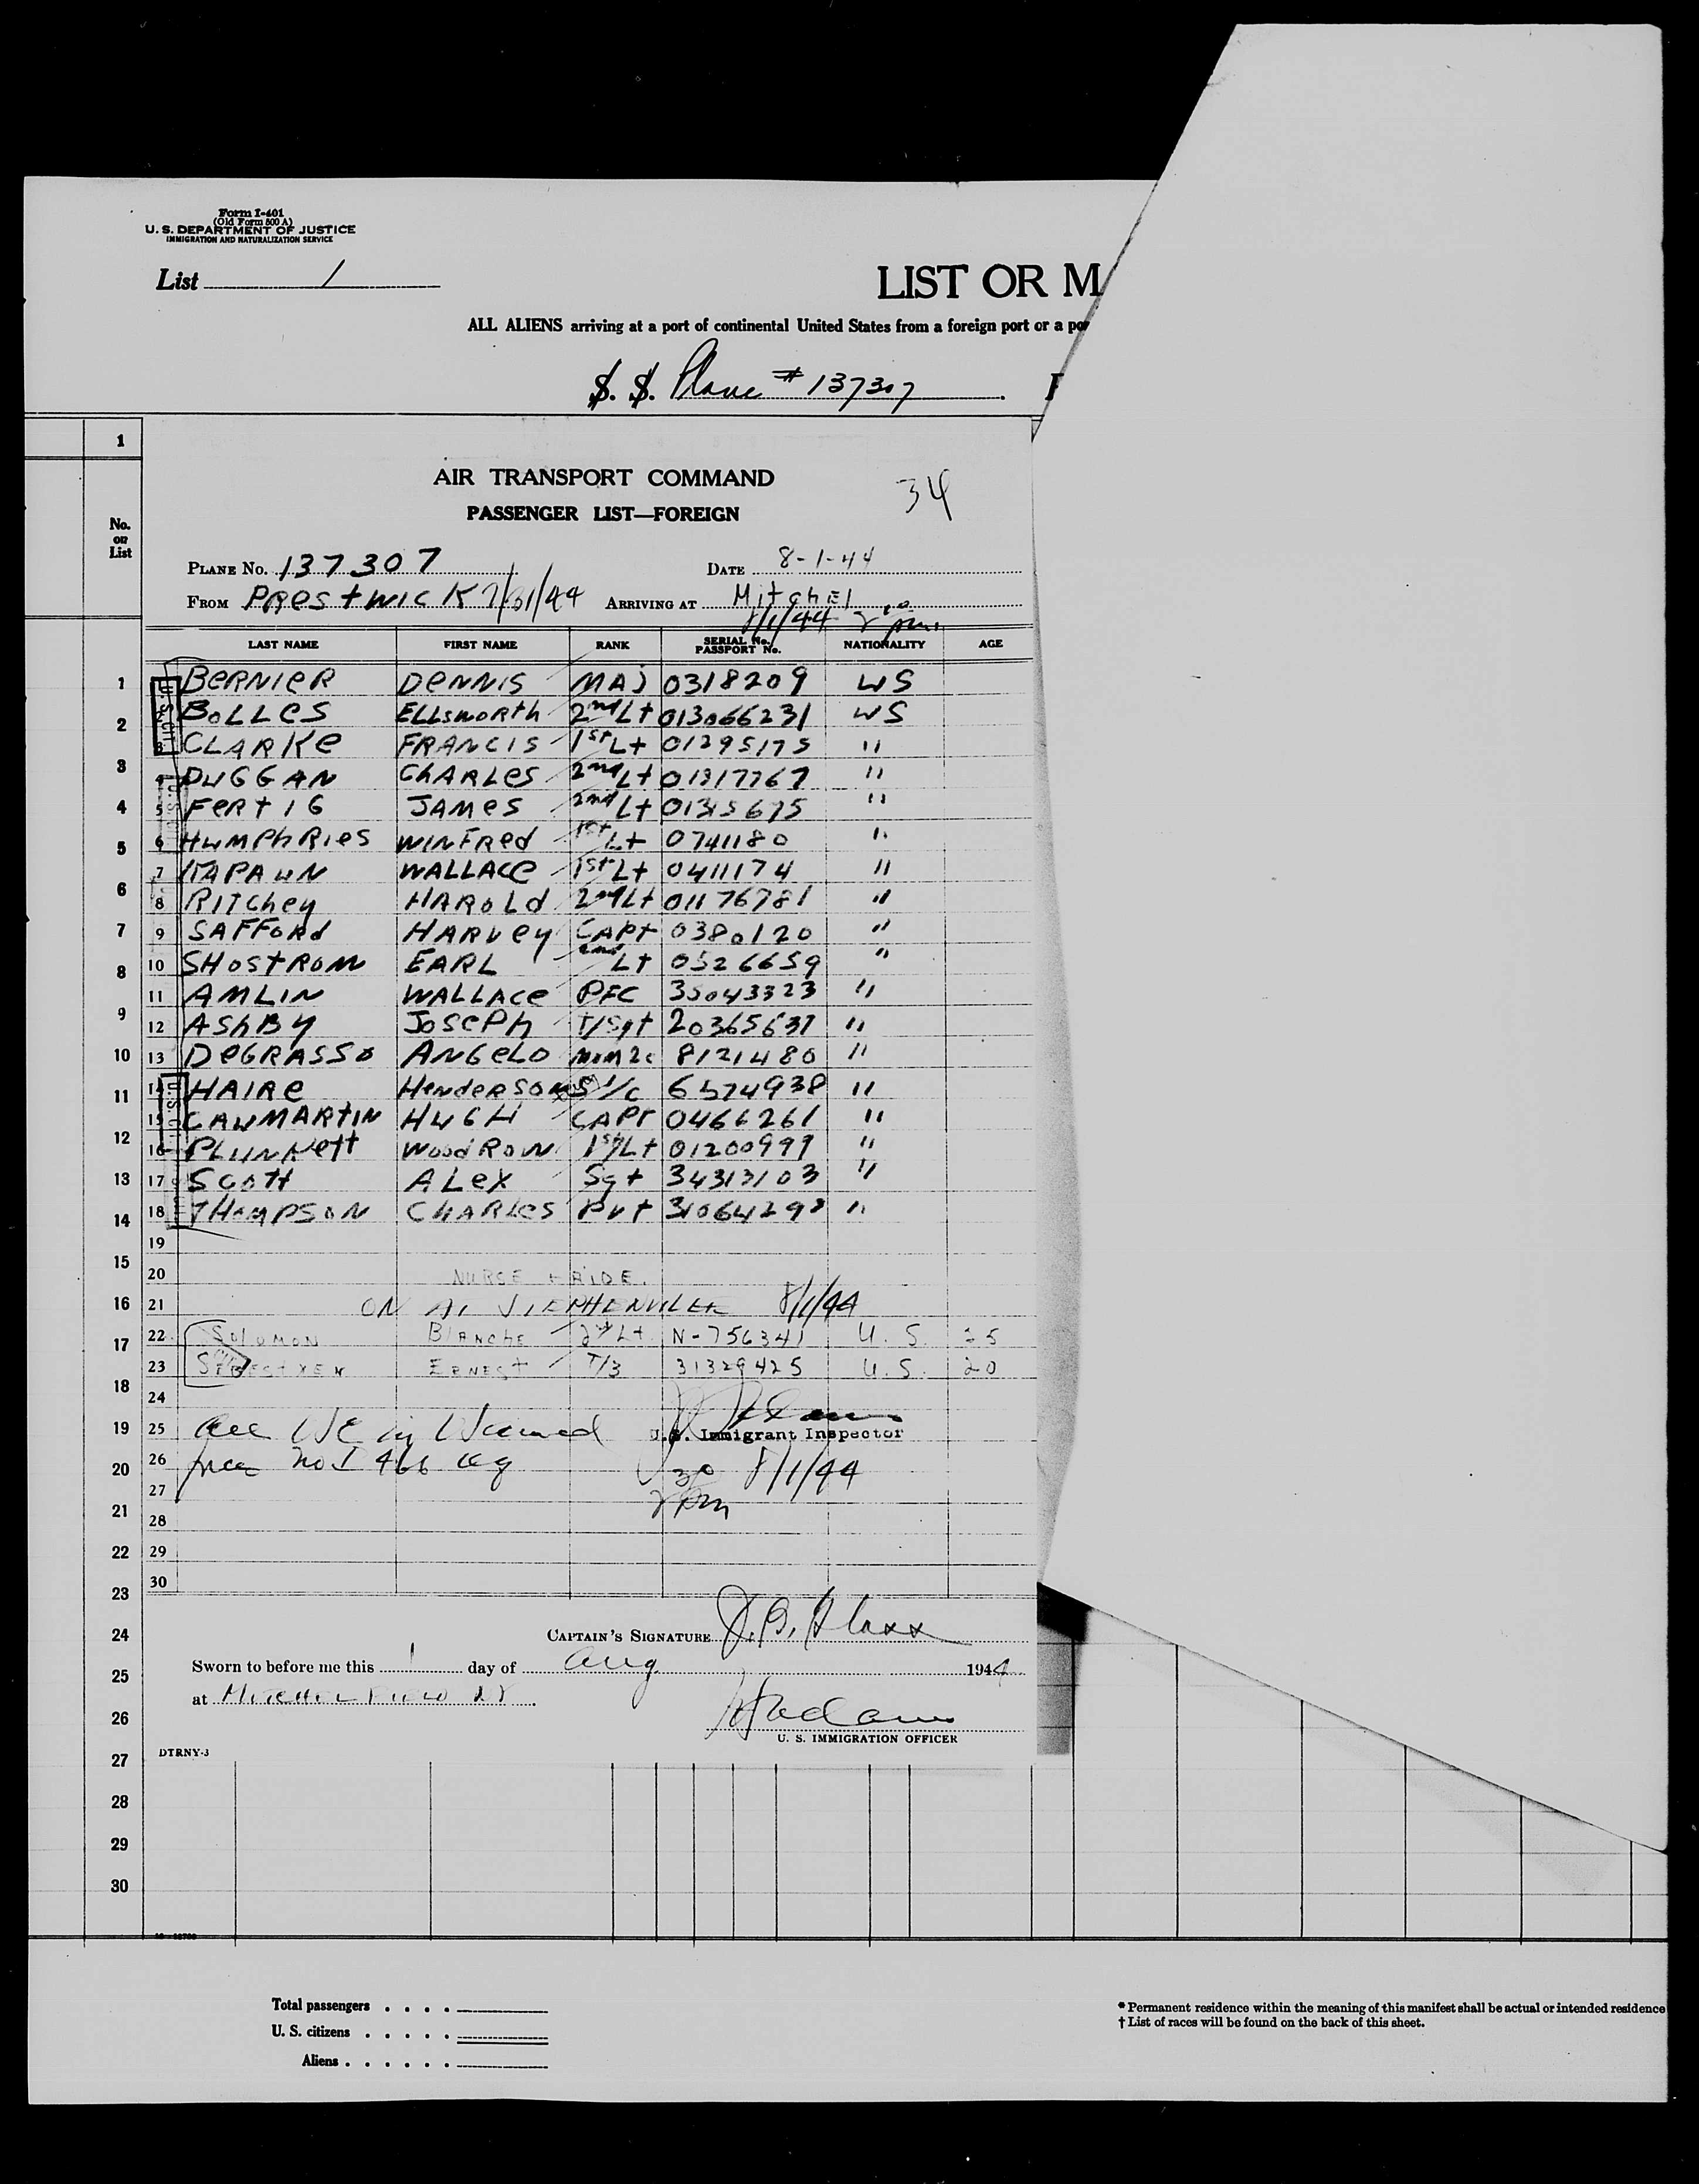 Form I-401
(Old Form 500 A)
U. S. DEPARTMENT OF JUSTICE
IMMIGRATION AND NATURALIZATION SERVICE
List 1
LIST OR M
ALL ALIENS arriving at a port of continental United States from a foreign port or a po
S. S. Plane # 137307
1
No. on List
AIR TRANSPORT COMMAND
34
PASSENGER LIST—FOREIGN
PLANE No. 137307 DATE 8-1-44
FROM PRestwICK 7/31/44 ARRIVING AT Mitchel
8/1/44 2 30 pm.
LAST NAME FIRST NAME RANK SERIAL No. PASSPORT No. NATIONALITY AGE
1 BERNIER DENNIS MAJ 0318209 US
2 BOLLES ELLSWORTH 2nd Lt 013066231 US
3 CLARKE FRANCIS 1st Lt 01295175 "
4 DUGGAN CHARLES 2nd Lt 01317767 "
5 FERTIG JAMES 2nd Lt 01315675 "
6 HUMPHRIES WINFRED 1st Lt 0741180 "
7 KAPAUN WALLACE 1st Lt 0411174 "
8 RITCHEY HAROLD 2nd Lt 01176781 "
9 SAFFORD HARVEY CAPT 0380120 "
10 SHOSTROM EARL 2nd Lt 0526659 "
11 AMLIN WALLACE PFC 35043323 "
12 ASHBY JOSEPH T/Sgt 20365637 "
13 DEGRASSO ANGELO MoM 2c 8121480 "
14 HAIRE HENDERSON S 1/c 6574938 "
15 CAUMARTIN HUGH CAPT 0466261 "
16 PLUNKETT WOODROW 1st Lt 01200999 "
17 SCOTT ALEX Sgt 34313103 "
18 THOMPSON CHARLES Pvt 31064292 "
19
20 NURSE + AIDE.
21 ON AT STEPHENVILLE 8/1/44
22 SOLOMON BLANCHE 2nd Lt N-756341 U. S. 25
23 ERNEST T/3 31329425 U. S. 20
24
25 U.S. Immigrant Inspector
26 30 8/1/44
27 2 pm
28
29
30
CAPTAIN'S SIGNATURE
Sworn to before me this 1 day of Aug 1944
at MITCHEL FIELD NY
U. S. IMMIGRATION OFFICER
DTRNY-3
1
2
3
4
5
6
7
8
9
10
11
12
13
14
15
16
17
18
19
20
21
22
23
24
25
26
27
28
29
30
Total passengers . . . .
U. S. citizens . . . . .
Aliens . . . . . .
* Permanent residence within the meaning of this manifest shall be actual or intended residence
† List of races will be found on the back of this sheet.